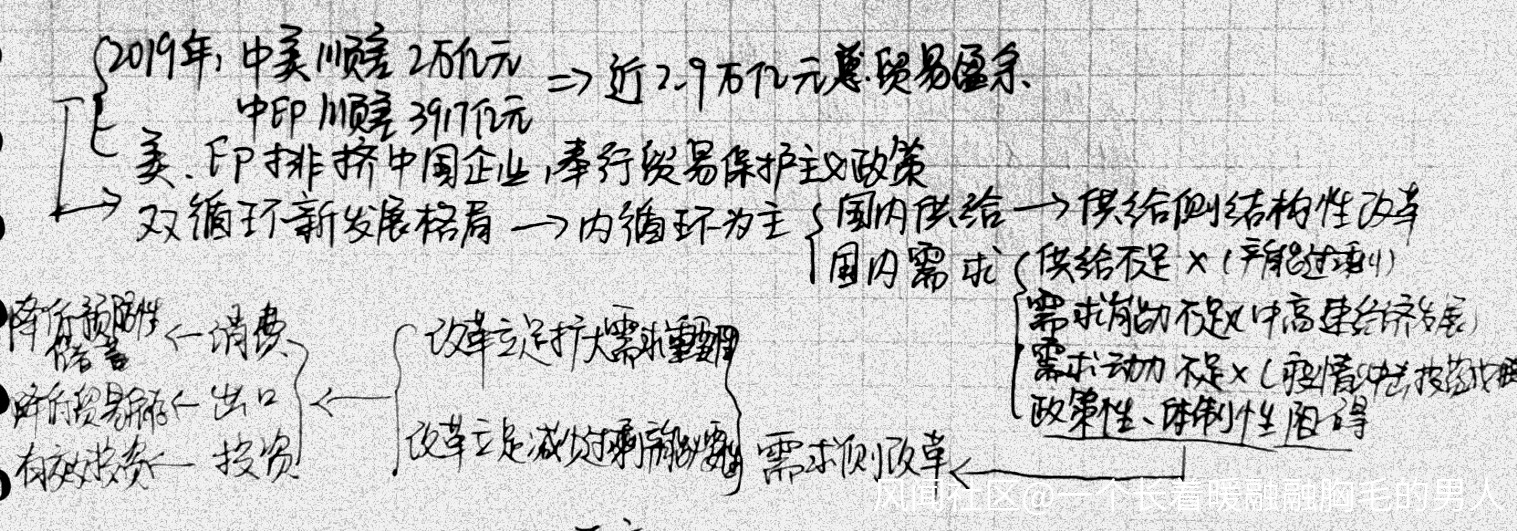 2019年,中美顺差2万亿元
中印顺差3917亿元
⇒近2.9万亿元总贸易盈余.
美、印排挤中国企业,奉行贸易保护主义政策
双循环新发展格局→内循环为主
国内供给→供给侧结构性改革
国内需求
供给不足×(产能过剩)
需求 不足×(中高速经济发展)
需求动力不足×(疫情冲击,
政策性、体制性阻碍
需求侧改革
改革立足扩大需求
改革立足减少过剩
消费
出口
投资
降低预防性
储蓄
降低贸易
有效投资
风闻社区@一个长着暖融融胸毛的男人